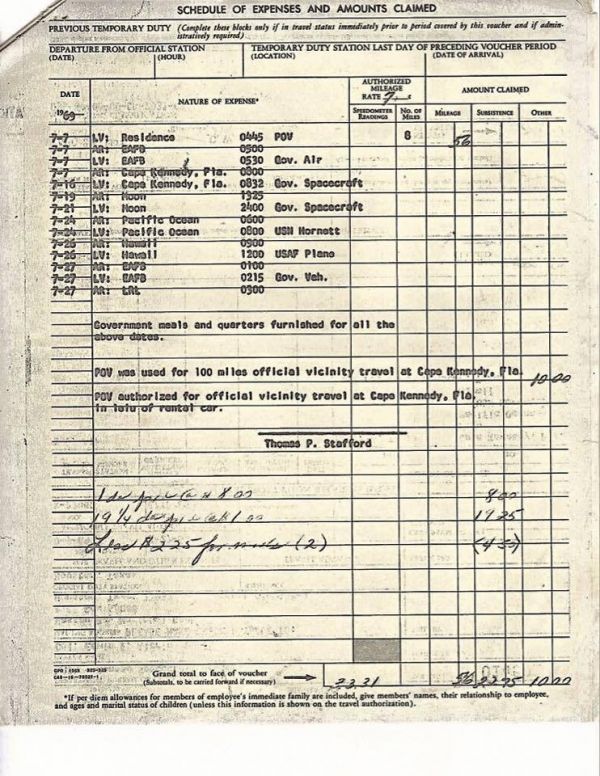 SCHEDULE OF EXPENSES AND AMOUNTS CLAIMED
PREVIOUS TEMPORARY DUTY (Complete these blocks only if in travel status immediately prior to period covered by this voucher and if admin-
istratively required)
DEPARTURE FROM OFFICIAL STATION TEMPORARY DUTY STATION LAST DAY OF PRECEDING VOUCHER PERIOD
(DATE) (HOUR) (LOCATION) (DATE OF ARRIVAL)
DATE NATURE OF EXPENSE* AUTHORIZED MILEAGE RATE 7 AMOUNT CLAIMED
1969 SPEEDOMETER READINGS NO. OF MILES MILEAGE SUBSISTENCE OTHER
7-7 LV: Residence 0445 POV 8 56
7-7 AR: EAFB 0500
7-7 LV: EAFB 0530 Gov. Air
7-7 AR: Cape Kennedy, Fla. 0800
7-16 LV: Cape Kennedy, Fla. 0832 Gov. Spacecraft
7-19 AR: Moon 1325
7-21 LV: Moon 2400 Gov. Spacecraft
7-24 AR: Pacific Ocean 0600
7-24 LV: Pacific Ocean 0800 USN Hornett
7-26 AR: Hawaii 0900
7-26 LV: Hawaii 1200 USAF Plane
7-27 AR: EAFB 0100
7-27 LV: EAFB 0215 Gov. Veh.
7-27 AR: 0300
Government meals and quarters furnished for all the
above dates.
POV was used for 100 miles official vicinity travel at Cape Kennedy, Fla. 10.00
POV authorized for official vicinity travel at Cape Kennedy, Fla.
in leiu of rental car.
Thomas P. Stafford
1 da 8.00 8.00
19 1/4 da 1.00 19.25
Less $2.25 for meals (2) (4.50)
Grand total to face of voucher
(Subtotals, to be carried forward if necessary) 33.31 56 22.75 10.00
*If per diem allowances for members of employee's immediate family are included, give members' names, their relationship to employee,
and ages and marital status of children (unless this information is shown on the travel authorization).